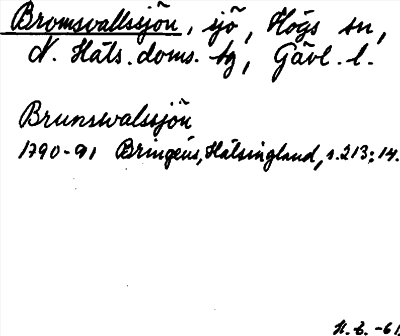 Bromsvallssjön, sjö, Högs sn,
N. Häls. doms. tg, Gävl. l.
Brunswalssjön
1790-91 Bringéus, Hälsingland, s. 213; 14.
H. E. -61.